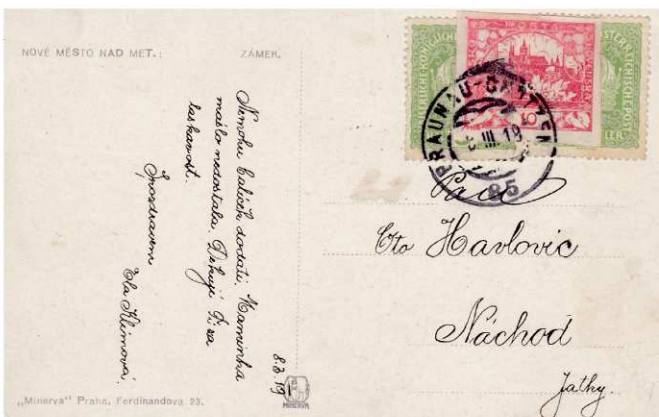 NOVÉ MĚSTO NAD MET.: ZÁMEK.
Nemohu balíček dodati. Maminka
máslo nedostala. Děkuji Ti za
laskavost.
S pozdravem
Ela Klimová.
8.3.19
"Minerva" Praha, Ferdinandova 23.
MINERVA
BRAUNAU-
III 19
25
Pan
Oto Havlovic
Náchod
Jatky.